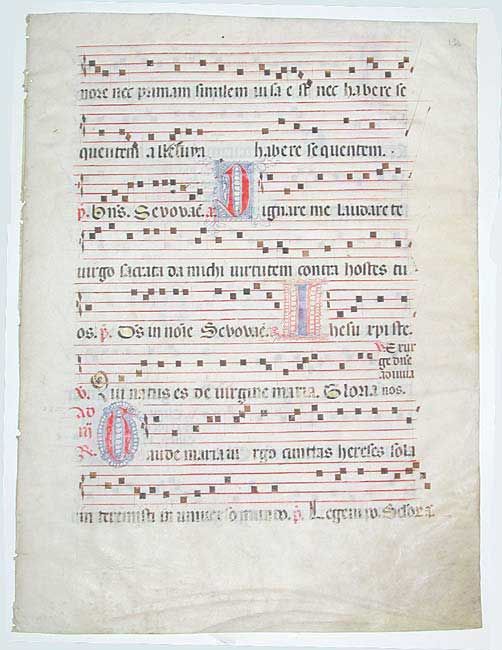 nore nec primam similem visa est nec habere se
quentem alleluya habere sequentem.
p. Bn̄s. Sevovaē. a. Dignare me laudare te
virgo sacrata da michi virtutem contra hostes tu
os. p. Ds in noīe Sevovaē. Ihesu xpiste.
v. Exur
ge dn̄e
adiuva
v. Qui natus es de virgine maria. Gloria nos.
ad
iij
R.
Gaude maria virgo cunctas hereses sola
in teremisti in universo mundo. p.